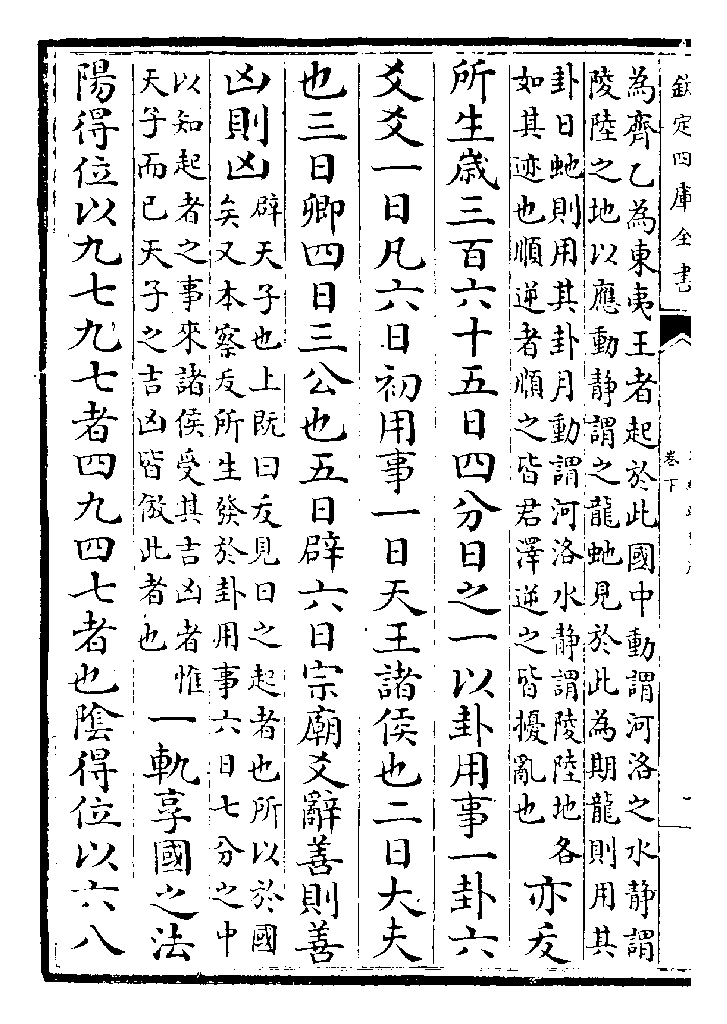 欽定四庫全書
卷下
為齊乙為東夷王者起於此國中動謂河洛之水靜謂
陵陸之地以應動靜謂之龍虵見於此為期龍則用其
卦日虵則用其卦月動謂河洛水静謂陵陸地各
如其迹也順逆者順之皆君澤逆之皆擾亂也
亦㕛
所生歲三百六十五日四分日之一以卦用事一卦六
爻爻一日凡六日初用事一日天王諸侯也二日大夫
也三日卿四日三公也五日辟六日宗廟爻辭善則善
凶則凶
辟天子也上既曰㕛見日之起者也所以於國
矣又本察㕛所生發於卦用事六日七分之中
以知起者之事來諸侯受其吉凶者惟
天子而已天子之吉凶皆倣此者也
一軌享國之法
陽得位以九七九七者四九四七者也隂得位以六八